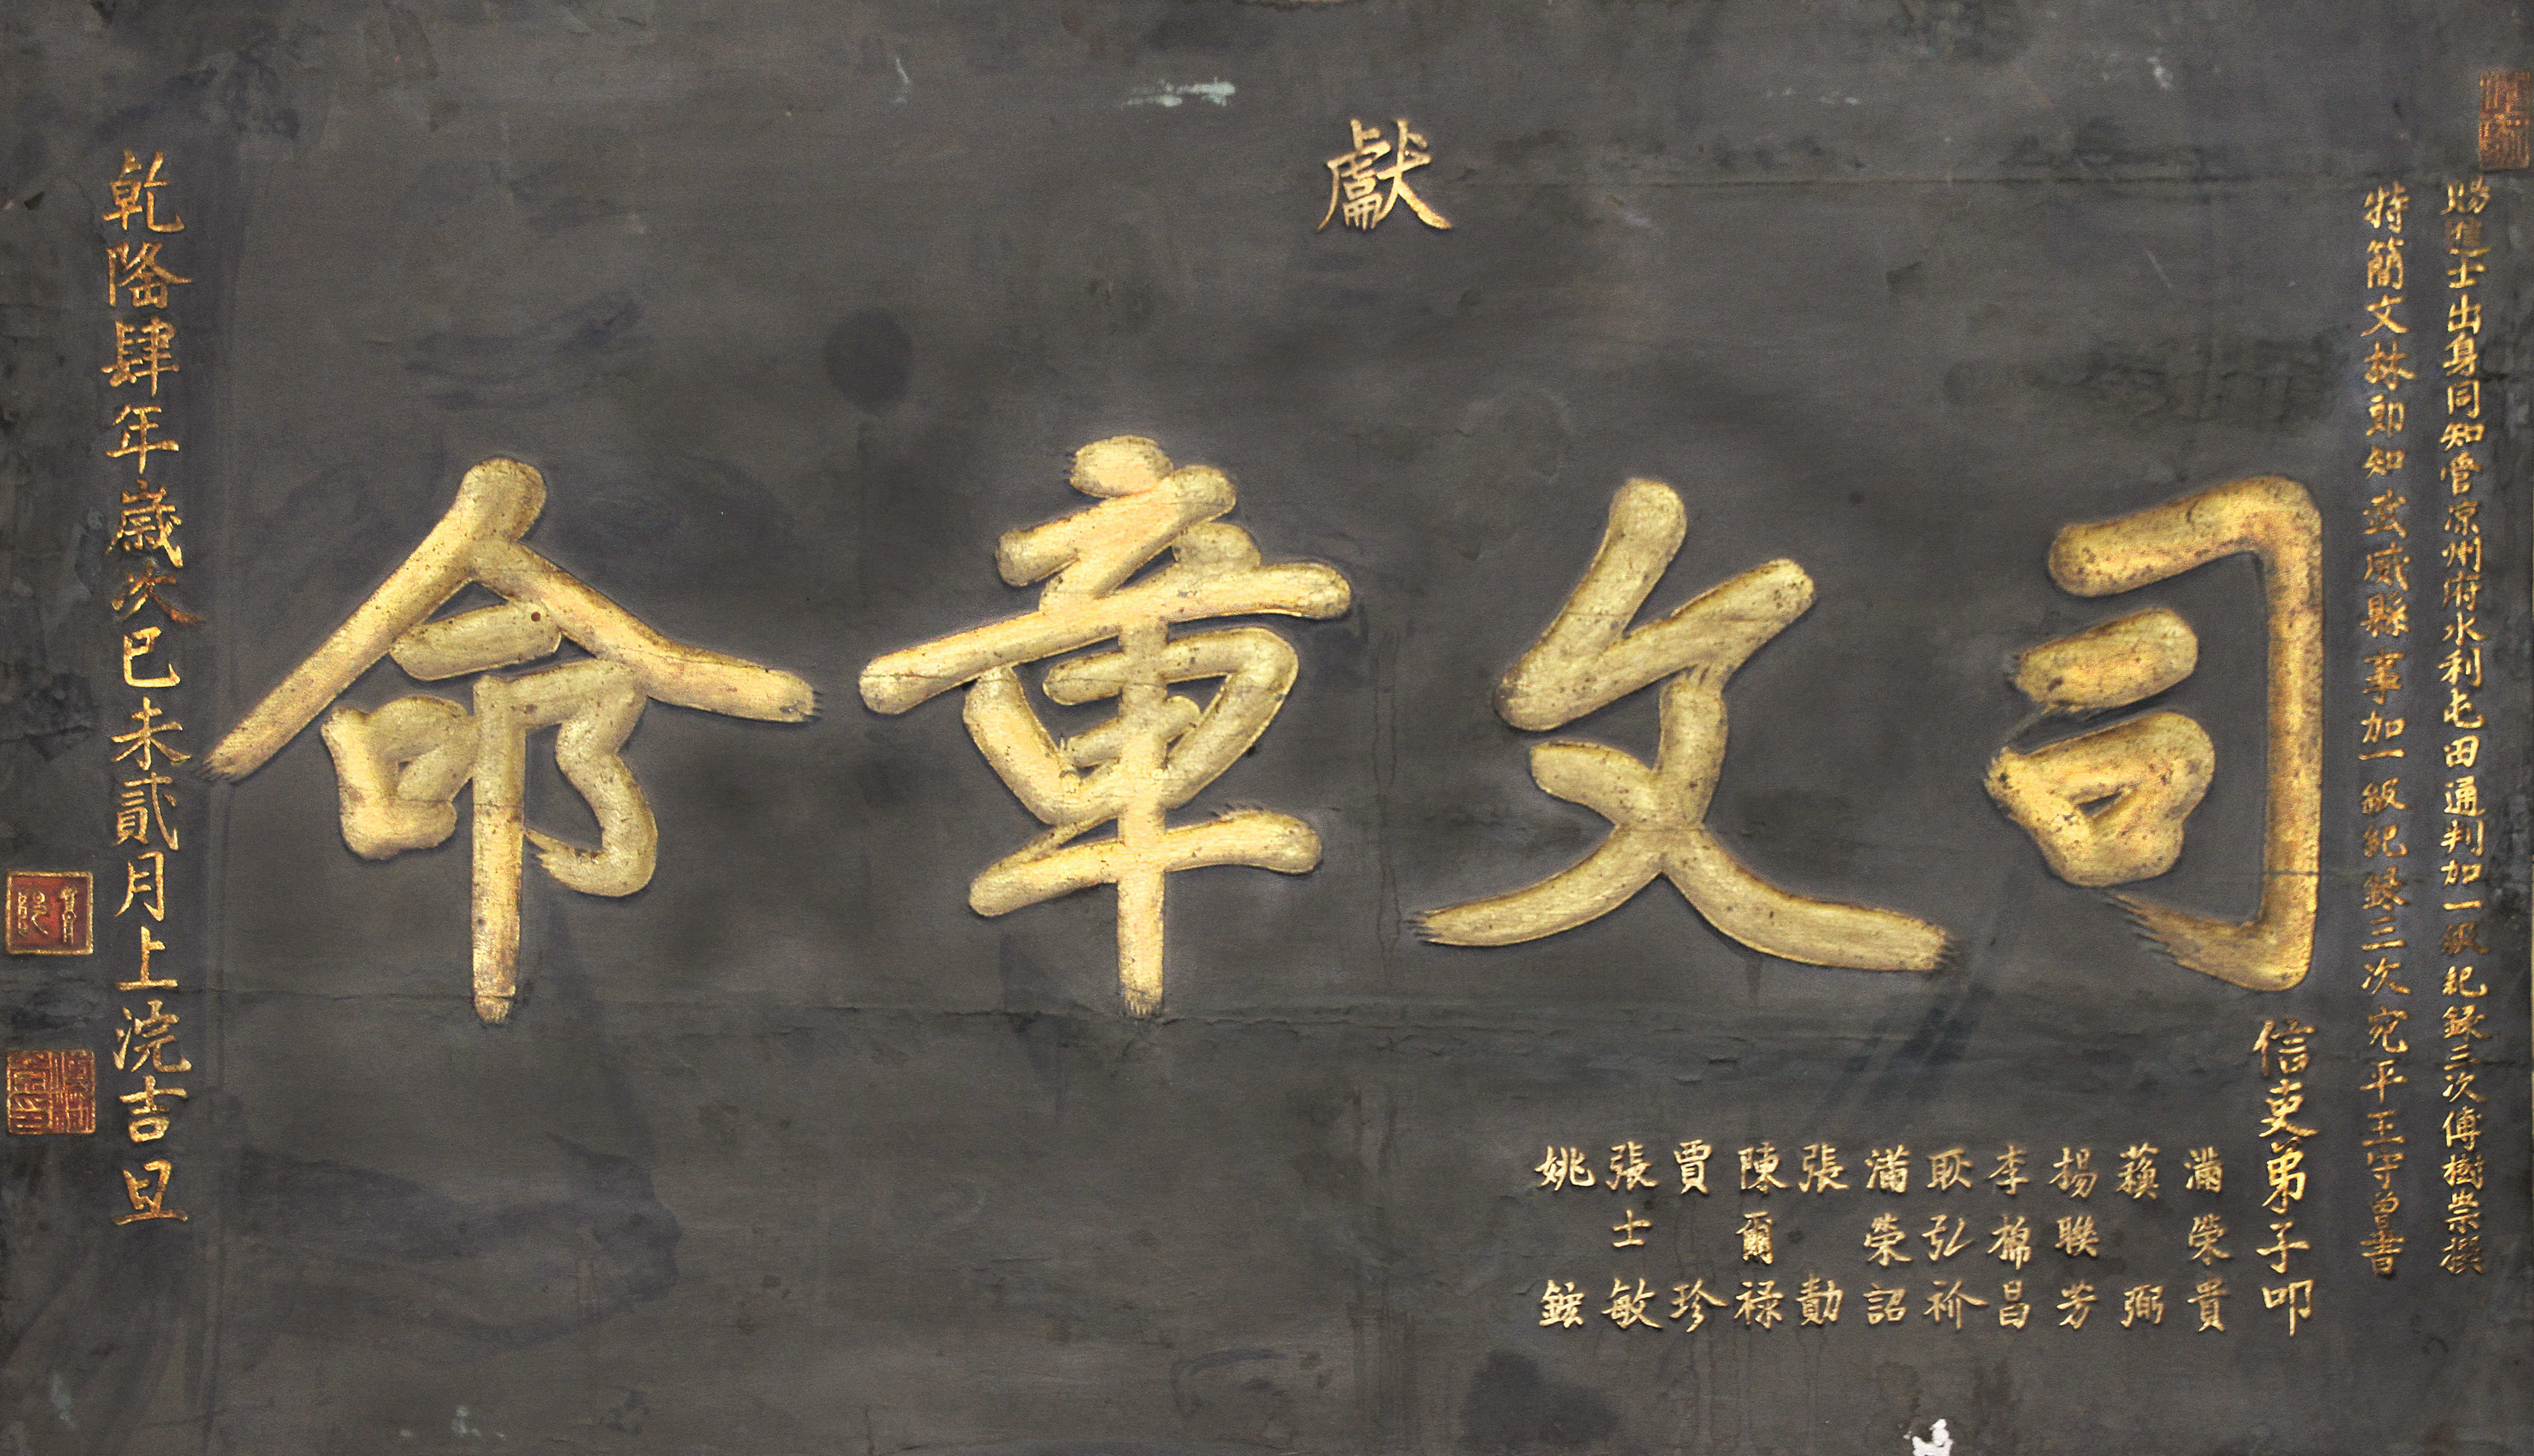 賜進士出身同知管凉州府水利屯田通判加一級紀錄三次傅樹崇撰
特簡文林郎知武威縣事加一級紀錄三次宛平王守曾書
獻
司文章命
信吏弟子叩
滿榮貴
蘓弼
楊聯芳
李棉昌
耿弘祚
滿榮詔
張勳
陳爾禄
賈珍
張士敏
姚鋐
乾隆肆年歲次已未貳月上浣吉旦